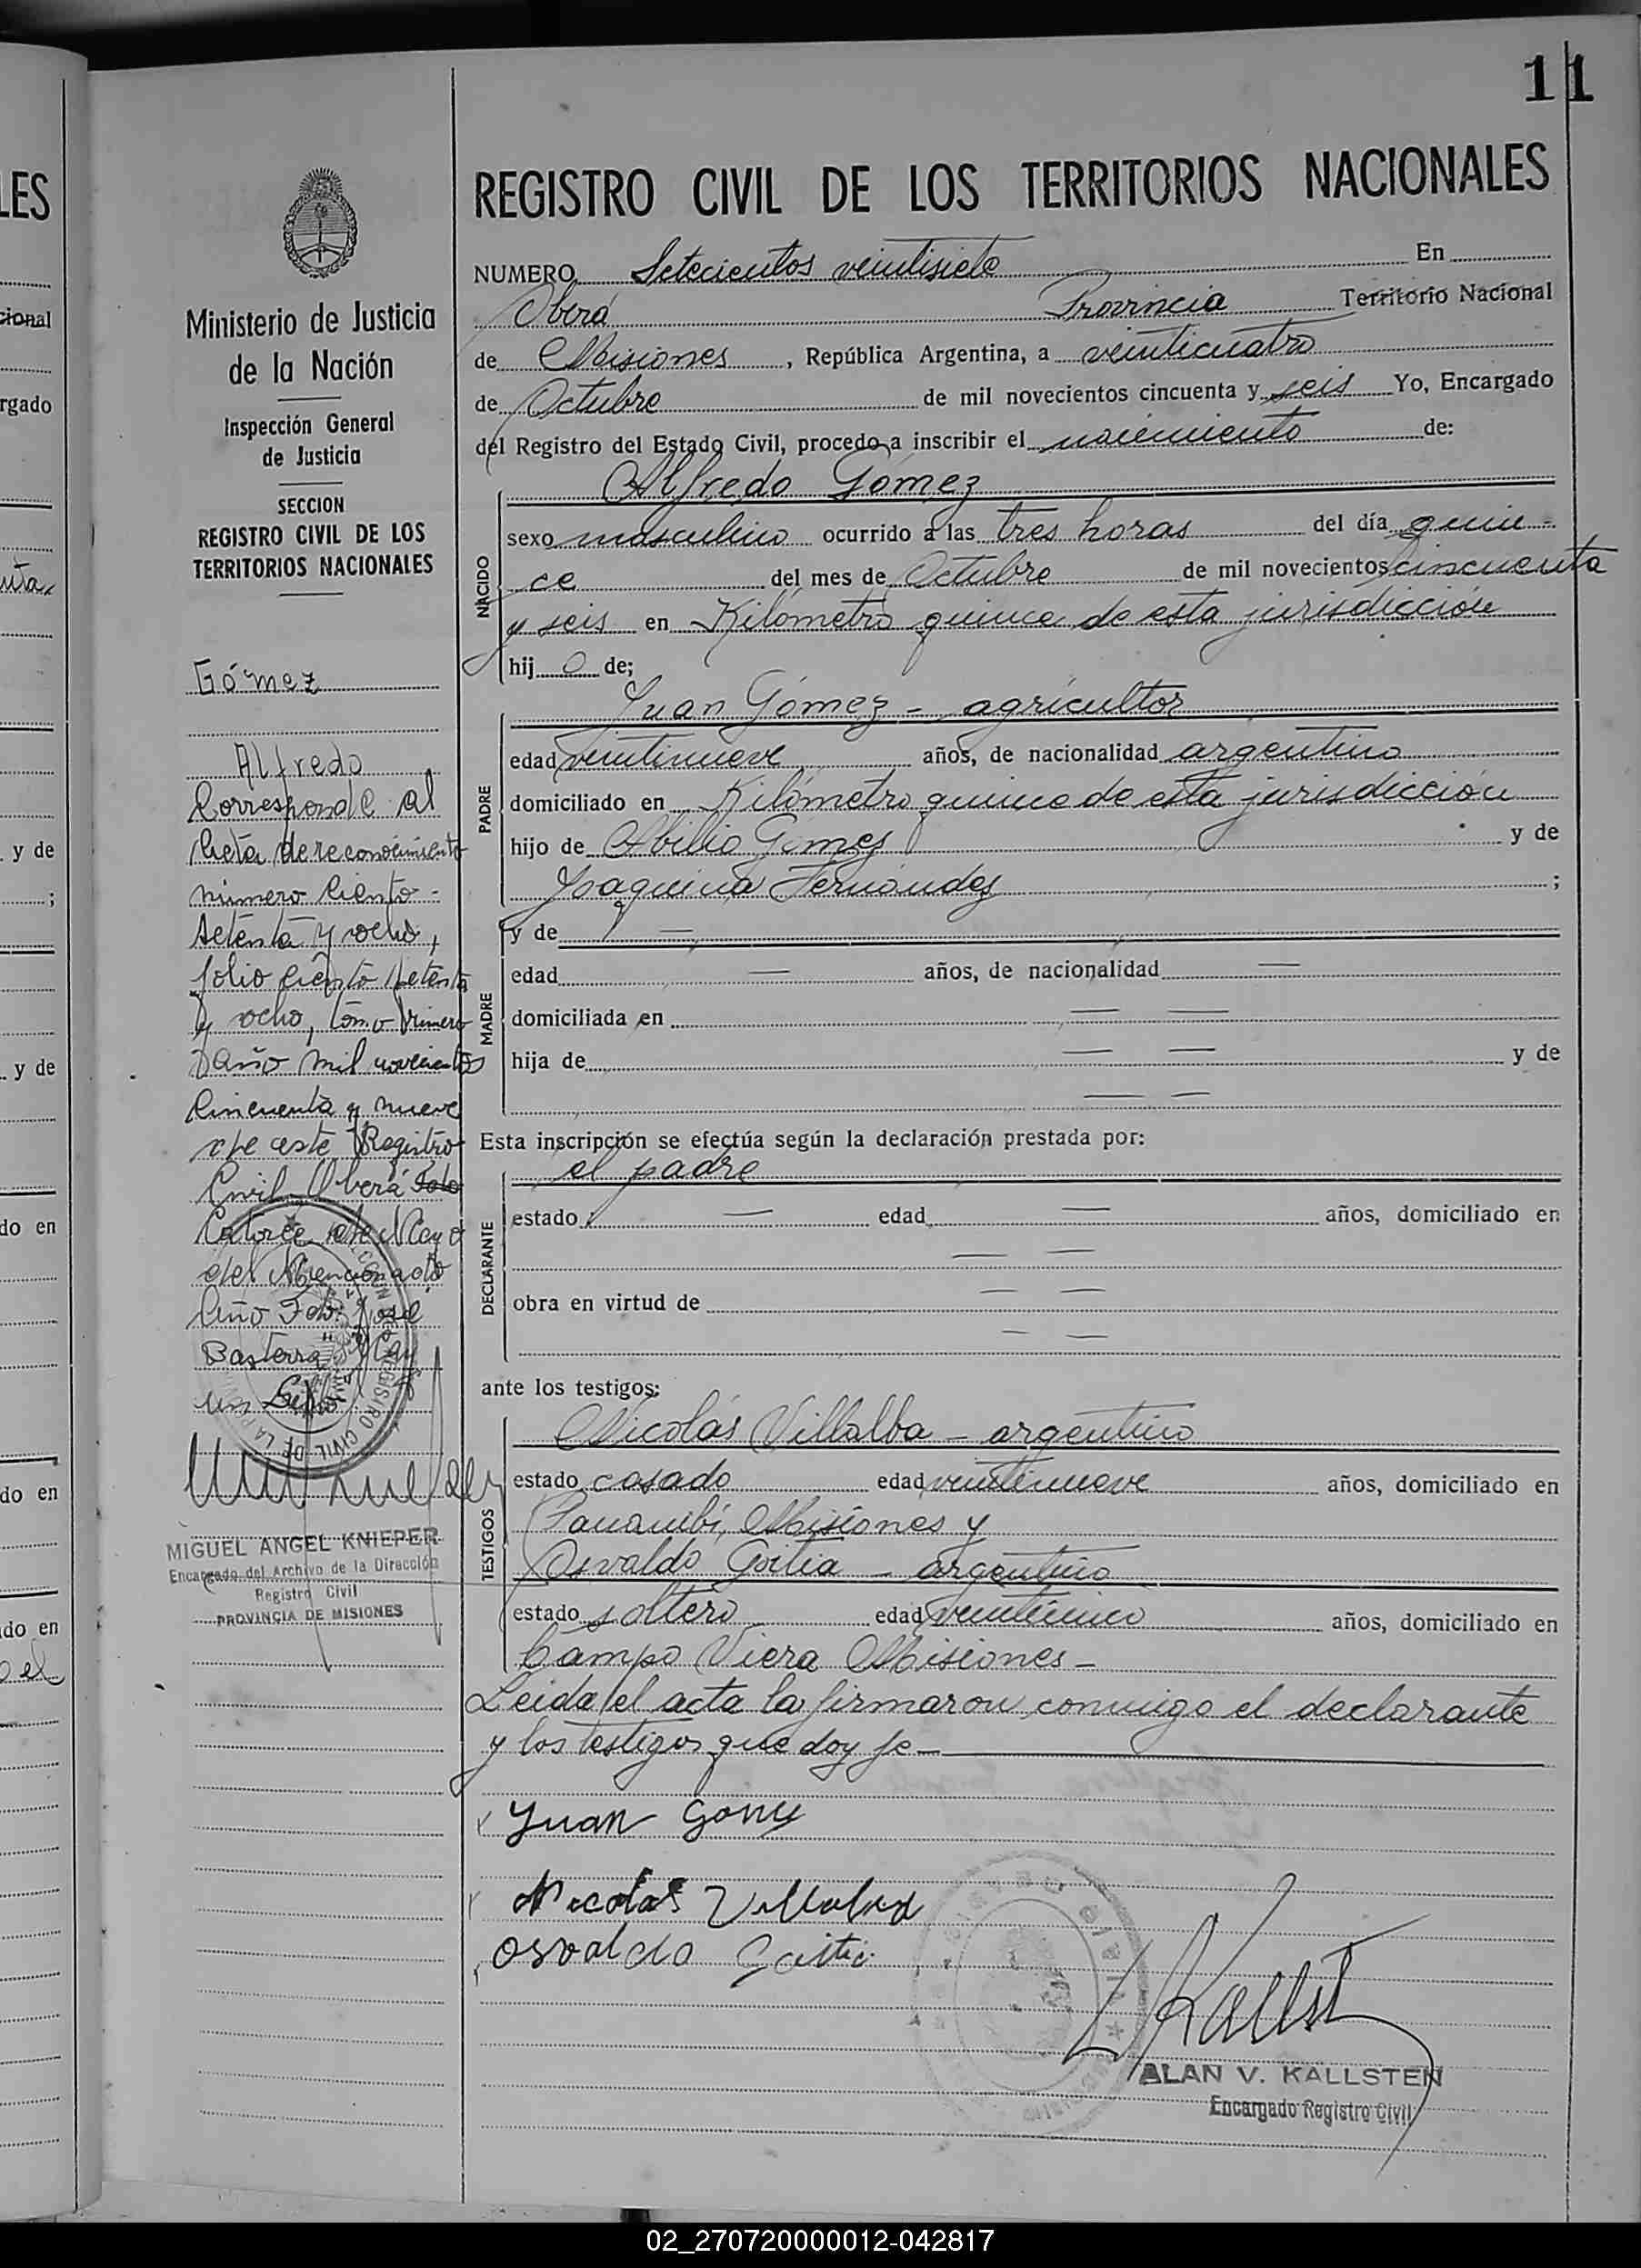 11
LES
REGISTRO CIVIL DE LOS TERRITORIOS NACIONALES
Ministerio de Justicia
de la Nación
Inspección General
de Justicia
SECCION
REGISTRO CIVIL DE LOS
TERRITORIOS NACIONALES
NUMERO Setecientos veintisiete En
Oberá Provincia Territorio Nacional
de Misiones, República Argentina, a veinticuatro
de Octubre de mil novecientos cincuenta y seis Yo, Encargado
del Registro del Estado Civil, procedo a inscribir el nacimiento de:
Alfredo Gómez
NACIDO
sexo masculino ocurrido a las tres horas del día quin-
ce del mes de Octubre de mil novecientos cincuenta
y seis en Kilómetro quince de esta jurisdicción
hijo de;
PADRE
Juan Gómez - agricultor
edad veintinueve años, de nacionalidad argentino
domiciliado en Kilómetro quince de esta jurisdicción
hijo de Abilio Gomes y de
Joaquina Fernándes ;
MADRE
y de —
edad — años, de nacionalidad —
domiciliada en — —
hija de — — y de
— —
Esta inscripción se efectúa según la declaración prestada por:
DECLARANTE
el padre
estado — edad — años, domiciliado en
— —
obra en virtud de — —
— —
ante los testigos:
TESTIGOS
Nicolás Villalba - argentino
estado casado edad veintinueve años, domiciliado en
Panambí, Misiones y
Osvaldo Goitia - argentino
estado soltero edad veinticinco años, domiciliado en
Campo Viera Misiones -
Leída el acta la firmaron conmigo el declarante
y los testigos que doy fe —
Juan Gomez
Nicolas Villalba
Osvaldo Goitia
ALAN V. KALLSTEN
Encargado Registro Civil
Gómez
Alfredo
Corresponde al
Acta de reconocimiento
número Ciento -
setenta y ocho,
folio ciento setenta
y ocho, tomo primero
año mil novecientos
Cincuenta y nueve
de este Registro
Civil Oberá
Catorce de Mayo
del Mencionado
Año Fdo: José
Basterra Hay
un Sello
MIGUEL ANGEL KNIEPER
Encargado del Archivo de la Dirección
Registro Civil
PROVINCIA DE MISIONES
cional
rgado
y de
;
y de
do en
do en
do en
el
02_270720000012-042817